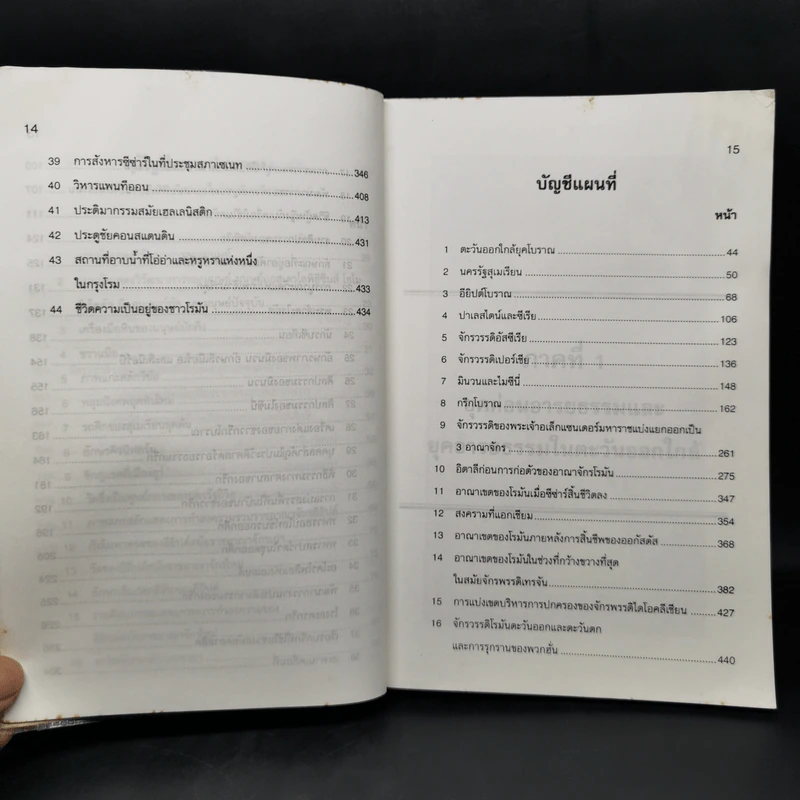 14
39 การสังหารซีซ่าร์ในที่ประชุมสภาเซเนท 346
40 วิหารแพนทีออน 408
41 ประติมากรรมสมัยเฮลเลนิสติก 413
42 ประตูชัยคอนสแตนติน 431
43 สถานที่อาบน้ำที่โอ่อ่าและหรูหราแห่งหนึ่ง
ในกรุงโรม 433
44 ชีวิตความเป็นอยู่ของชาวโรมัน 434
15
บัญชีแผนที่
หน้า
1 ตะวันออกใกล้ยุคโบราณ 44
2 นครรัฐสุเมเรียน 50
3 อียิปต์โบราณ 68
4 ปาเลสไตน์และซีเรีย 106
5 จักรวรรดิอัสซีเรีย 123
6 จักรวรรดิเปอร์เซีย 136
7 มินวนและไมซีนี่ 148
8 กรีกโบราณ 162
9 จักรวรรดิของพระเจ้าอเล็กแซนเดอร์มหาราชแบ่งแยกออกเป็น
3 อาณาจักร 261
10 อิตาลีก่อนการก่อตัวของอาณาจักรโรมัน 275
11 อาณาเขตของโรมันเมื่อซีซ่าร์สิ้นชีวิตลง 347
12 สงครามที่แอกเซียม 354
13 อาณาเขตของโรมันภายหลังการสิ้นชีพของออกัสตัส 368
14 อาณาเขตของโรมันในช่วงที่กว้างขวางที่สุด
ในสมัยจักรพรรดิเทรจัน 382
15 การแบ่งเขตบริหารการปกครองของจักรพรรดิไดโอคลีเชียน 427
16 จักรวรรดิโรมันตะวันออกและตะวันตก
และการรุกรานของพวกฮั่น 440